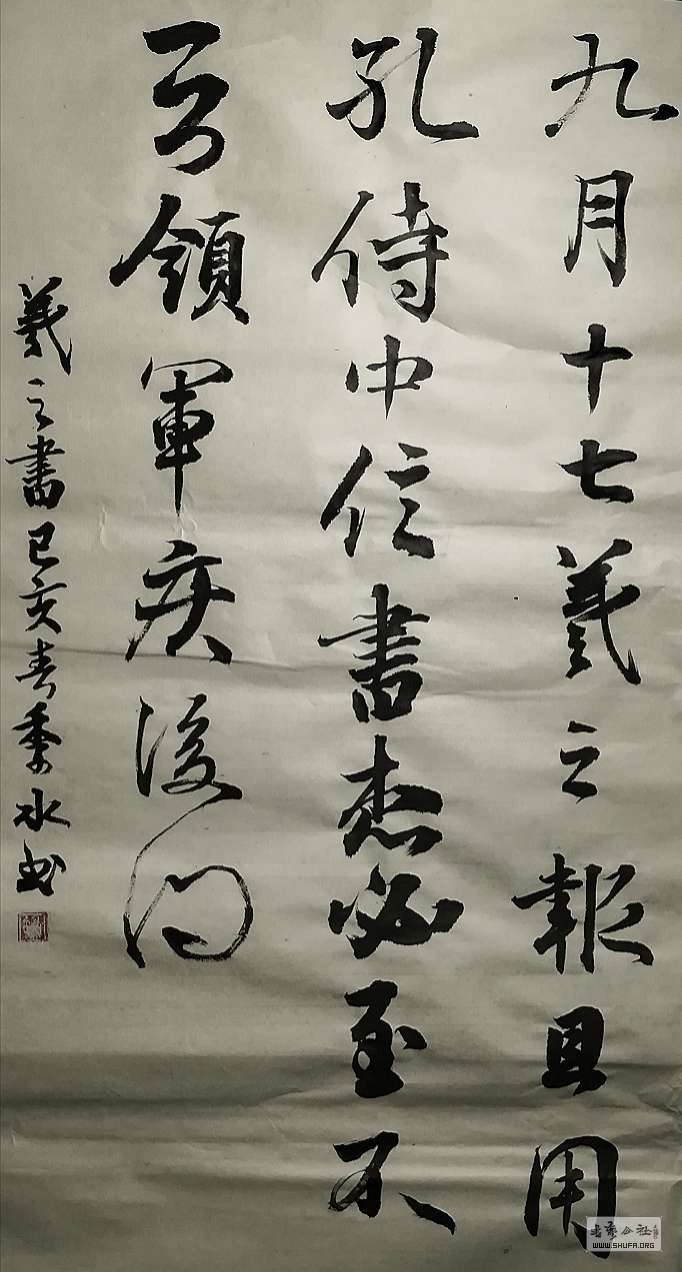 九月十七羲之報且用
孔侍中信書想必至不
知領軍疾後問
羲之書己亥春水书
WWW.SHUFA.ORG